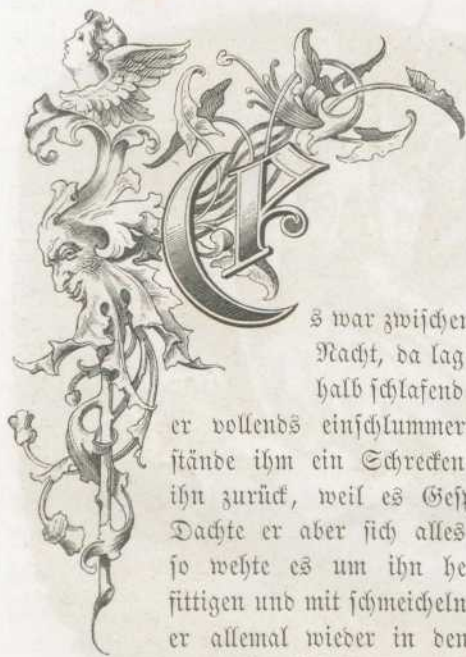 Es war zwischen
Nacht, da lag
halb schlafend
er vollends einschlummer
stände ihm ein Schrecken
ihn zurück, weil es Gesp
Dachte er aber sich alles
so wehte es um ihn he
fittigen und mit schmeicheln
er allemal wieder in den